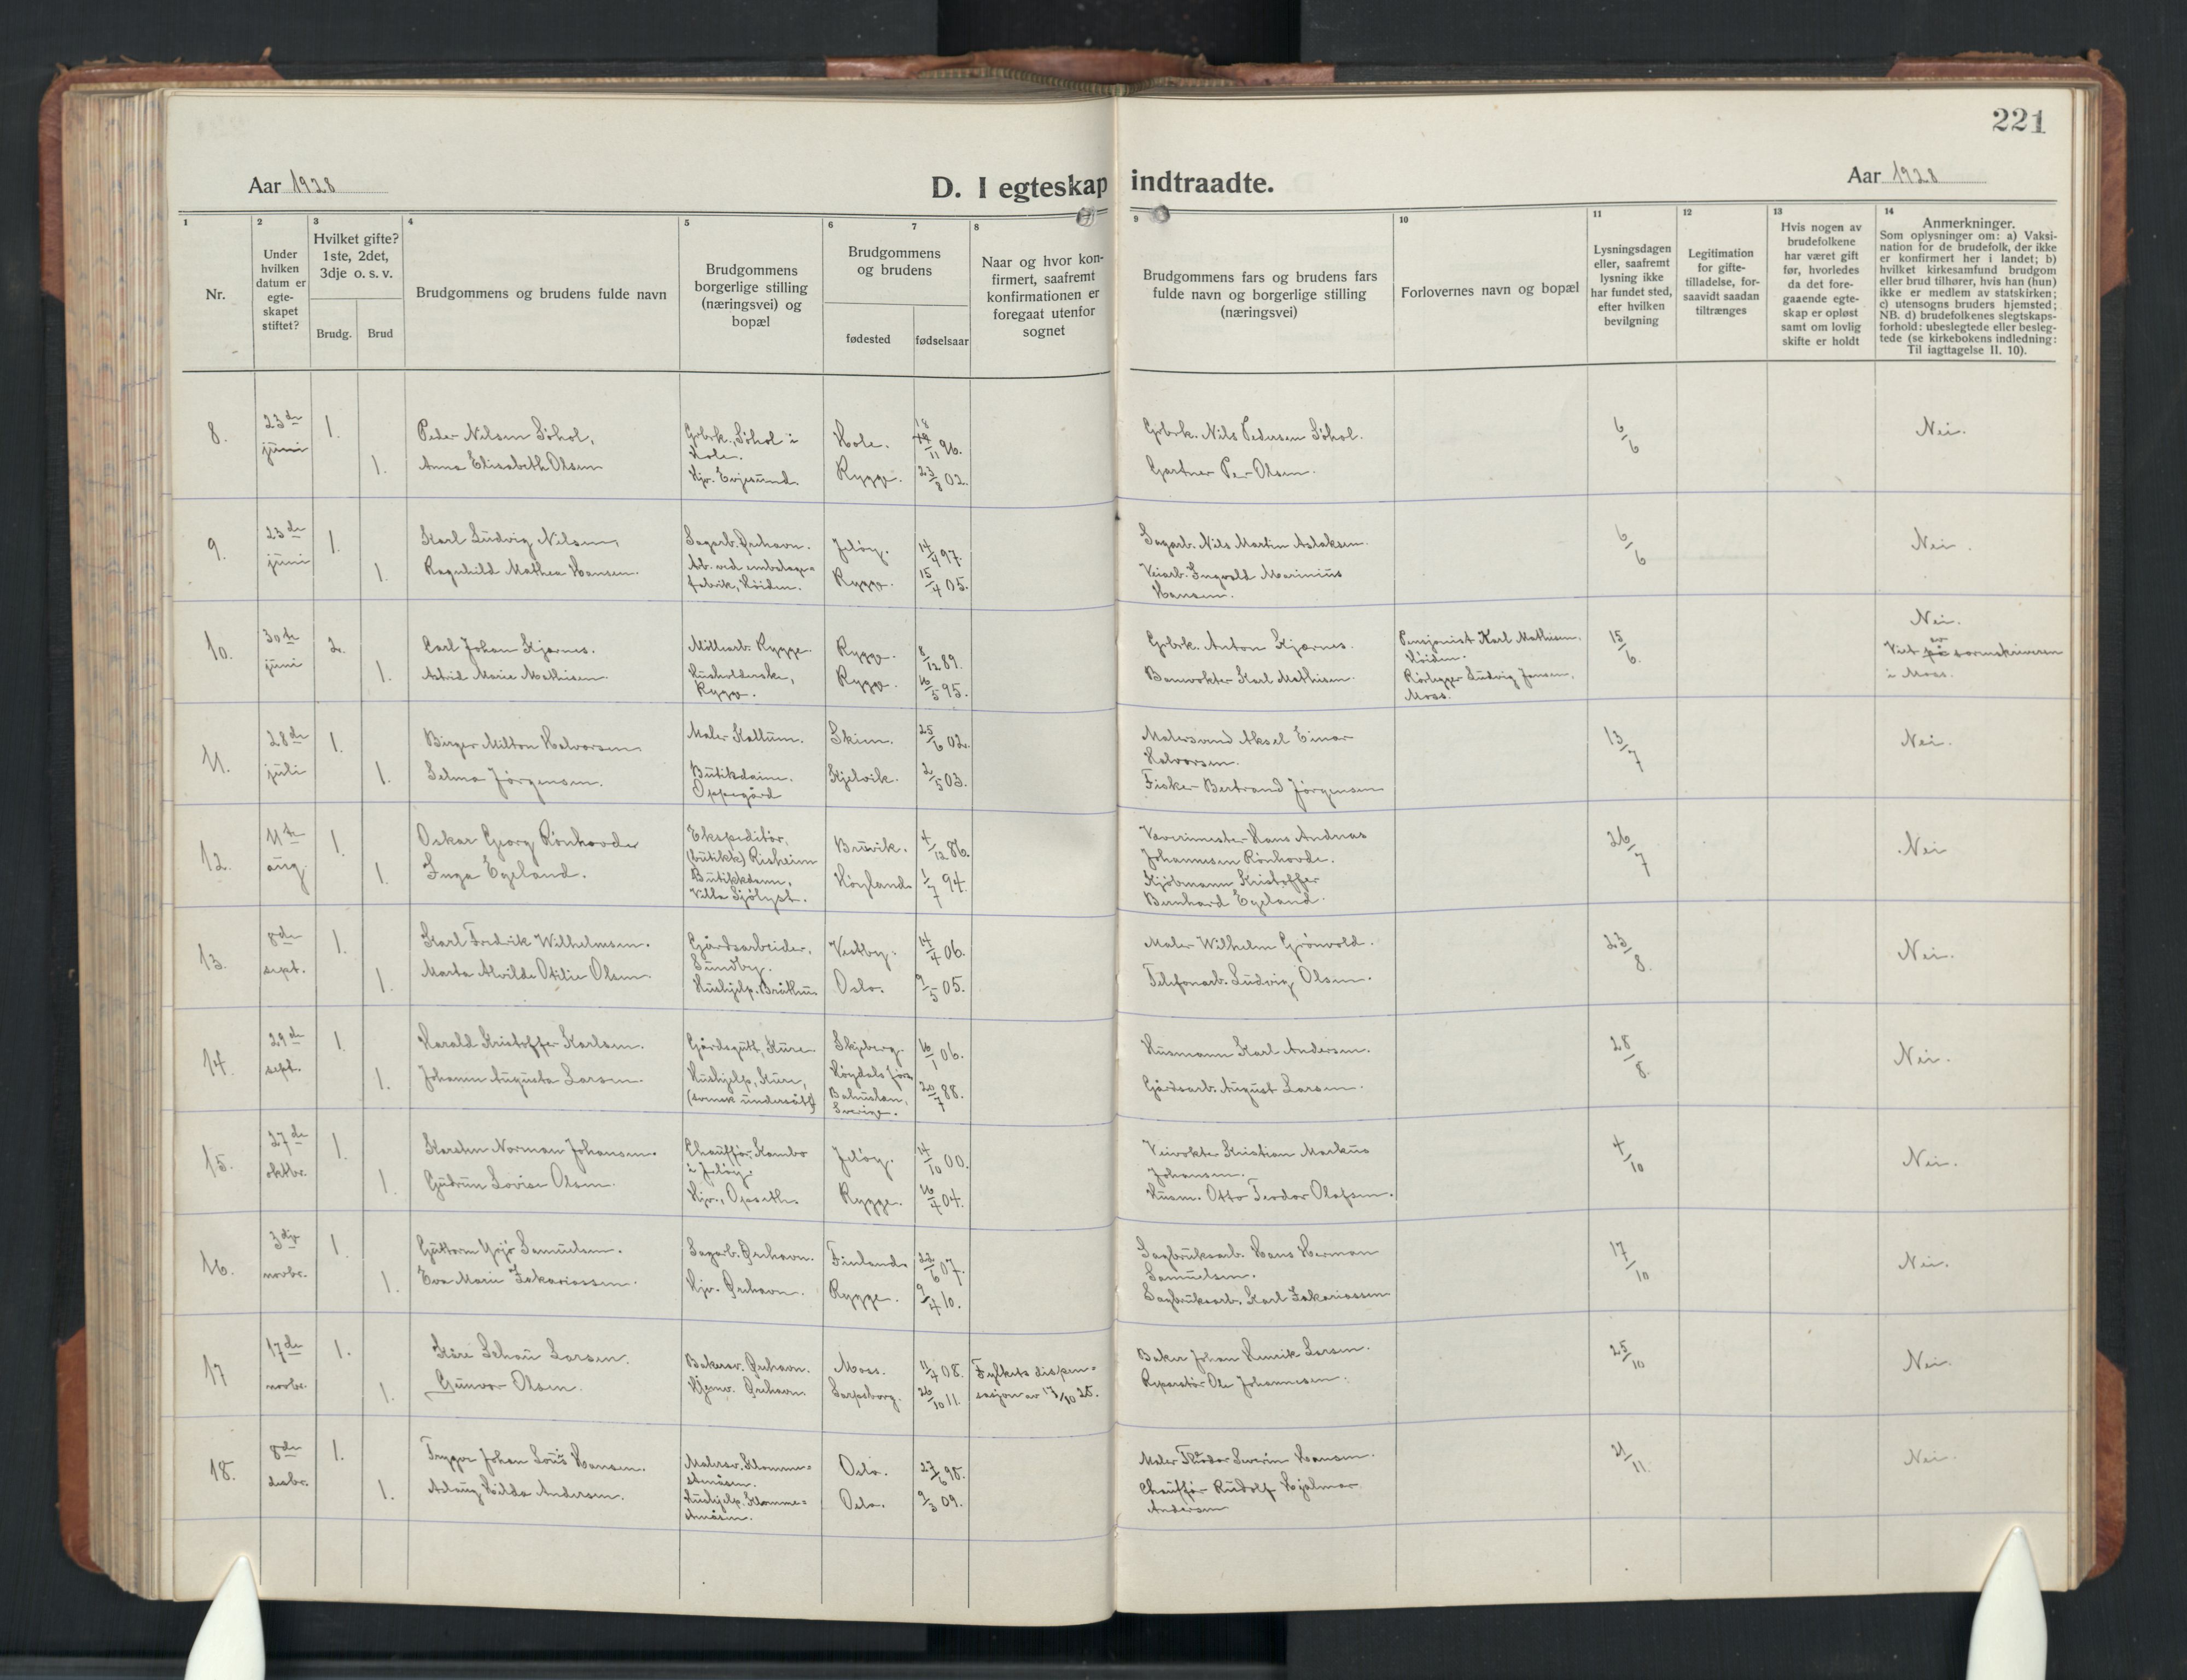 221
Aar 1928
D. I egteskap indtraadte.
Aar 1928
1
2
3
4
5
6
7
8
9
10
11
12
13
14
Nr.
Under
hvilken
datum er
egte-
skapet
stiftet?
Hvilket gifte?
1ste, 2det,
3dje o. s. v.
Brudg.
Brud
Brudgommens og brudens fulde navn
Brudgommens
borgerlige stilling
(næringsvei) og
bopæl
Brudgommens
og brudens
fødested
fødselsaar
Naar og hvor kon-
firmert, saafremt
konfirmationen er
foregaat utenfor
sognet
Brudgommens fars og brudens fars
fulde navn og borgerlige stilling
(næringsvei)
Forlovernes navn og bopæl
Lysningsdagen
eller, saafremt
lysning ikke
har fundet sted,
efter hvilken
bevilgning
Legitimation
for gifte-
tilladelse, for-
saavidt saadan
tiltrænges
Hvis nogen av
brudefolkene
har været gift
før, hvorledes
da det fore-
gaaende egte-
skap er opløst
samt om lovlig
skifte er holdt
Anmerkninger.
Som oplysninger om: a) Vaksi-
nation for de brudefolk, der ikke
er konfirmert her i landet; b)
hvilket kirkesamfund brudgom
eller brud tilhører, hvis han (hun)
ikke er medlem av statskirken;
c) utensogns bruders hjemsted;
NB. d) brudefolkenes slegtskaps-
forhold: ubeslegtede eller besleg-
tede (se kirkebokens indledning:
Til iagttagelse II. 10).
8.
23de
juni
1.
Peder Nilsen Søhol,
Grbrk., Søhol i
Hole.
Hole.
18/11 96.
Grbrk. Nils Pedersen Søhol.
6/6
Nei.
1.
Anna Elisabeth Olsen
Hjv. Evjesund.
Rygge.
23/8 02.
Gartner Per Olsen.
9.
23de
juni
1.
Karl Ludvig Nilsen,
Sagarb. Ørehavn.
Jeløy.
14/4 97.
Sagarb. Nils Martin Aslaksen.
6/6
Nei.
1.
Ragnhild Mathea Hansen.
Arb. ved embalage=
fabrik, Høiden.
Rygge.
15/4 05.
Veiarb. Ingvald Marinius
Hansen.
10.
30te
juni
2.
Carl Johan Kjærnes.
Møllearb. Rygge.
Rygge.
8/12 89.
Grbrk. Anton Kjærnes.
Pensjonist Karl Mathisen.
Høiden.
15/6.
Nei.
Viet av sorenskriveren
i Moss.
1.
Astrid Marie Mathisen.
Husholderske,
Rygge.
Rygge.
16/5 95.
Banevokter Karl Mathisen.
Rørlegger Ludvig Jensen,
Moss.
11.
28de
juli
1.
Birger Milton Halvorsen
Maler Kallum.
Skien.
25/6 02.
Malersvend Aksel Einar
Halvorsen.
13/7
Nei.
1.
Selma Jørgensen.
Butikdame.
Oppegård
Kjelvik.
2/5 03.
Fisker Bertrand Jørgensen
12.
11te
aug.
1.
Oskar Georg Rönhovde
Ekspeditør,
(butikk) Risheim
Bruvik.
4/12 86.
Væverimester Hans Andreas
Johannesen Rönhovde.
26/7
Nei
1.
Inga Egeland.
Butikkdame,
Villa Sjölyst.
Høyland
1/7 94.
Kjöbmann Kristoffer
Bernhard Egeland.
13.
8de
sept.
1.
Karl Fredrik Wilhelmsen.
Gårdsarbeider,
Sundby.
Vestby.
14/4 06.
Maler Wilhelm Grönvold.
23/8.
Nei.
1.
Marta Alvilde Otilie Olsen.
Hushjelp.
Oslo.
9/5 05.
Telefonarb. Ludvig Olsen.
14.
29de
sept.
1.
Harald Kristoffer Karlsen.
Gårdsgutt, Kure.
Skjeberg.
16/1 06.
Husmann Karl Andersen.
28/8.
Nei.
1.
Johanne Augusta Larsen.
Hushjelp, Kure,
(svensk undersått)
Høgdals
Sverige.
20/7 88.
Gårdsarb. August Larsen.
15.
27de
oktbr.
1.
Karsten Norman Johansen.
Chauffør, Kambo
i Jeløy.
Jeløy.
14/10 00.
Veivokter Kristian Markus
Johansen.
4/10
Nei.
1.
Gudrun Lovise Olsen.
Hjv., Opseth.
Rygge.
16/4 04.
Husm. Otto Teodor Olafsen.
16.
3dje
novbr.
1.
Guttorm Yrjö Samuelsen.
Sagarb. Ørehavn.
Finland
22/6 07.
Sagbruksarb. Hans Herman
Samuelsen.
17/10
Nei.
1.
Eva Marie Zakariassen.
Hjv. Ørehavn.
Rygge.
9/4 10.
Sagbruksarb. Karl Zakariassen
17
17de
novbr.
1.
Kåre Schou Larsen.
Bakersv. Ørehavn.
Moss.
11/4 08.
Fylkets dispen=
sasjon av 13/10 28.
Baker Johan Henrik Larsen.
25/10
Nei.
1.
Gunvor Olsen.
Hjemv. Ørehavn.
Sarpsborg.
26/10 11.
Reparatør Ole Johannesen.
18.
8de
desbr.
1.
Trygve Johan Louis Hansen.
Malersv. Klomme=
stenåsen.
Oslo.
27/6 98.
Maler Teodor Severin Hansen.
21/11.
Nei.
1.
Aslaug Hilda Andersen.
Hushjelp. Klomme=
stenåsen.
Oslo.
9/3 09.
Chauffør Rudolf Hjalmar
Andersen